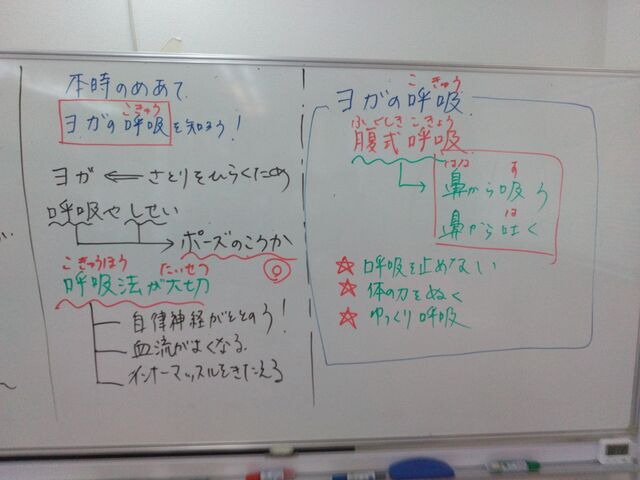 本時のめあて
こきゅう
ヨガの呼吸を知ろう!
ヨガ ⇐ さとりをひらくため
呼吸やしせい
→ポーズのこうか
こきゅうほう たいせつ
呼吸法が大切
自律神経がととのう!
血流がよくなる
インナーマッスルをきたえる
こ きゅう
ヨガの呼吸
ふくしき こきゅう
腹式呼吸
はな す
鼻から吸う
は
鼻から吐く
☆ 呼吸を止めない
☆ 体の力をぬく
☆ ゆっくり呼吸